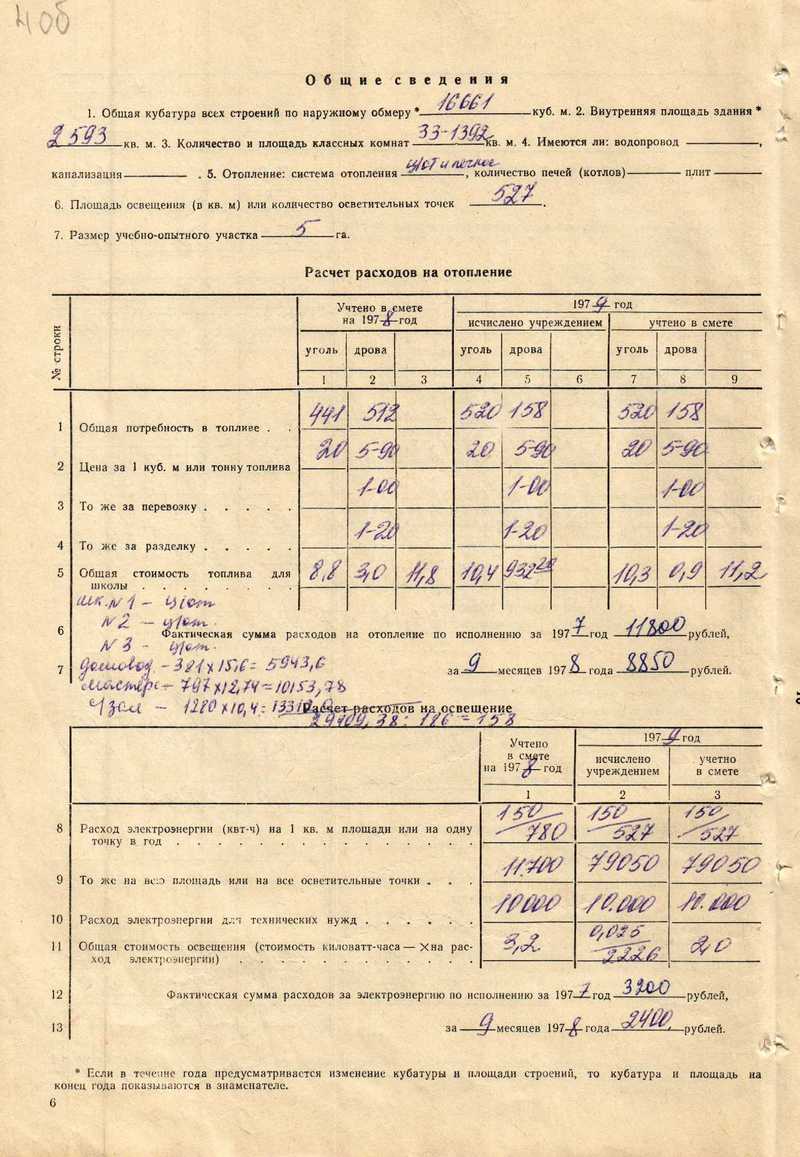 406
Общие сведения
1. Общая кубатура всех строений по наружному обмеру * 16661 куб. м. 2. Внутренняя площадь здания *
2593 кв. м. 3. Количество и площадь классных комнат 33-1392 кв. м. 4. Имеются ли: водопровод ,
канализация . 5. Отопление: система отопления ц/от и печное, количество печей (котлов) плит
6. Площадь освещения (в кв. м) или количество осветительных точек 527.
7. Размер учебно-опытного участка 5 га.
Расчет расходов на отопление
№ строки
Учтено в смете на 1978 год
1979 год
исчислено учреждением учтено в смете
уголь дрова уголь дрова уголь дрова
1 2 3 4 5 6 7 8 9
1 Общая потребность в топливе . . 441 512 520 158 520 158
2 Цена за 1 куб. м или тонну топлива 20 5-90 20 5-90 20 5-90
3 То же за перевозку . . . . . 1-00 1-00 1-00
4 То же за разделку . . . . . 1-20 1-20 1-20
5 Общая стоимость топлива для школы . . . . . . . . 8,8 3,0 11,8 10,4 932 10,3 0,9 11,2
шк. N 1 - ц/от
N 2 - ц/от.
6 Фактическая сумма расходов на отопление по исполнению за 1977 год 11800 рублей,
N 3 - ц/от.
7 за 9 месяцев 1978 года 8850 рублей.
- 381 х 15,6 = 5943,6
мастерс - 797 х 12,74 = 10153,78
- 1280 х 10,4 =
Расчет расходов на освещение
29409,38 : 186 = 158
Учтено в смете на 1978 год
1979 год
исчислено учреждением учетно в смете
1 2 3
8 Расход электроэнергии (квт-ч) на 1 кв. м площади или на одну точку в год . . . . . . . 150/780 150/527 150/527
9 То же на всю площадь или на все осветительные точки . . . 11.700 79050 79050
10 Расход электроэнергии для технических нужд . . . . . . 10000 10.000 10.000
11 Общая стоимость освещения (стоимость киловатт-часа — Х на расход электроэнергии) . . . . . . . 3,2 0,025/2226 2,0
12 Фактическая сумма расходов за электроэнергию по исполнению за 1977 год 3200 рублей,
13 за 9 месяцев 1978 года 2400, рублей.
* Если в течение года предусматривается изменение кубатуры и площади строений, то кубатура и площадь на
конец года показываются в знаменателе.
6